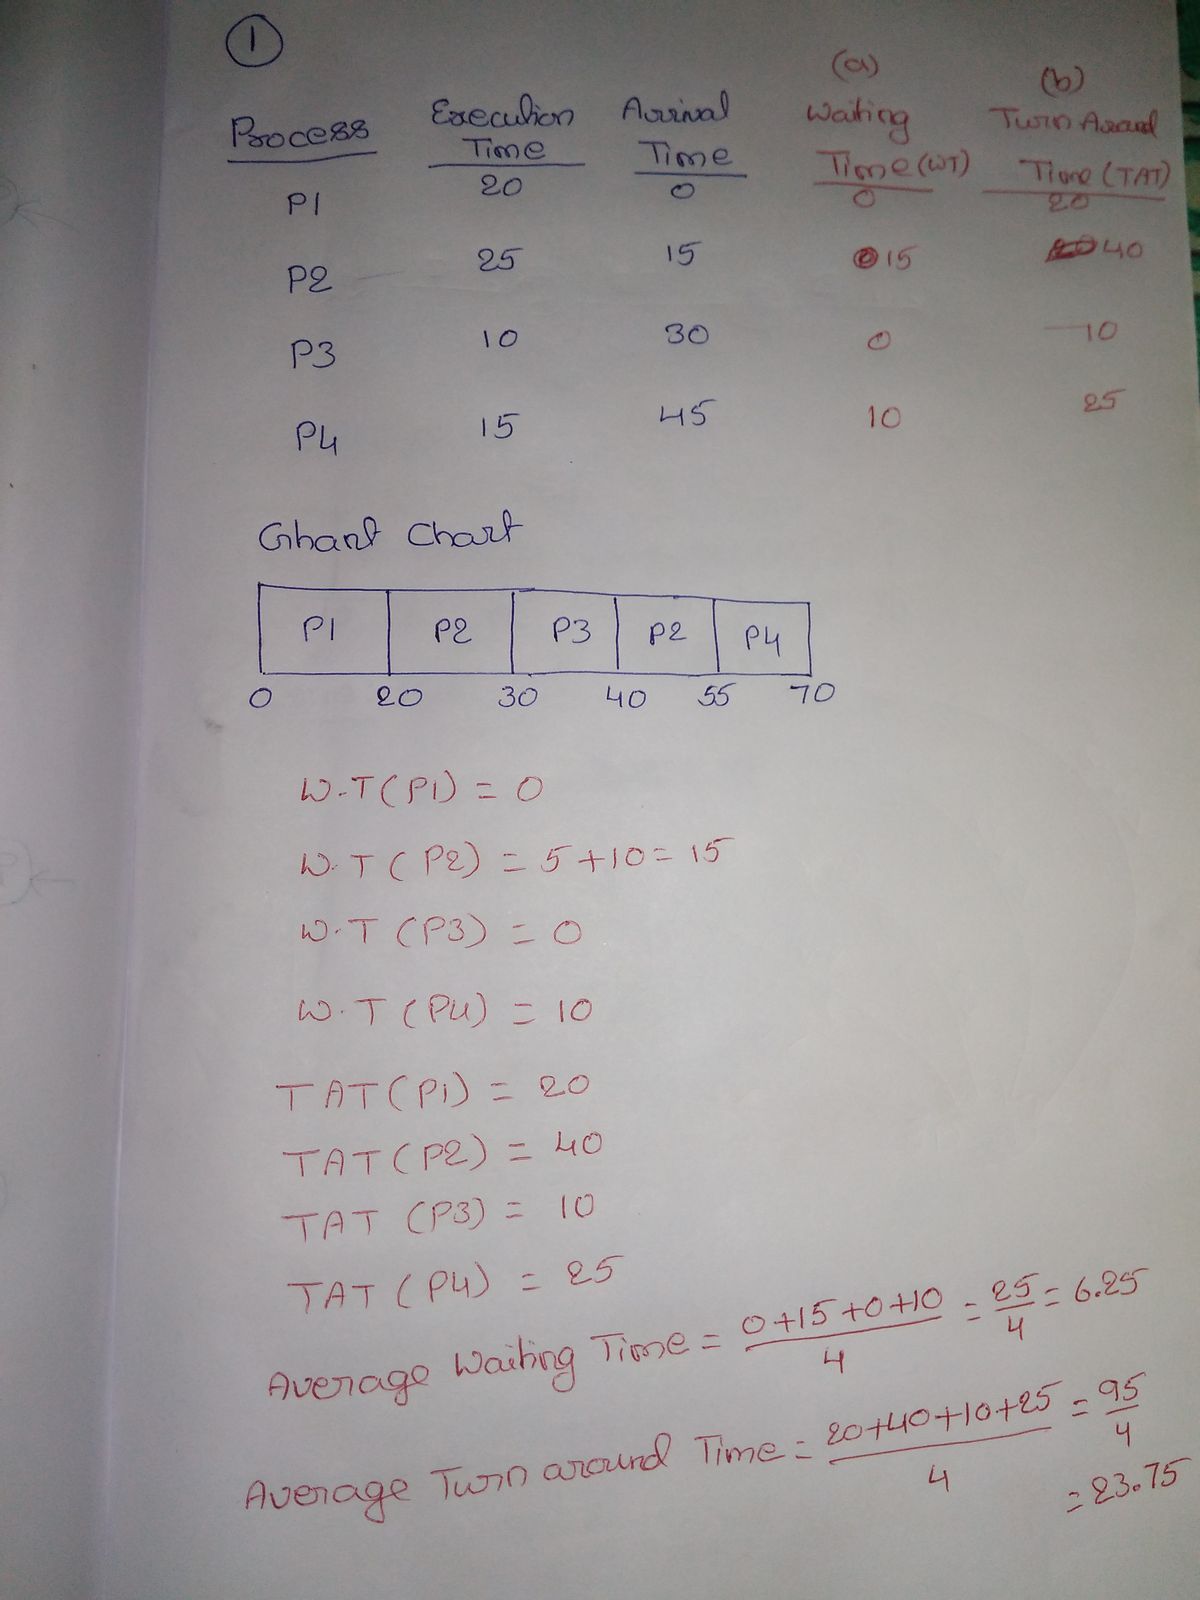 1
(a) (b)
Process Execution Time Arrival Time Waiting Time (WT) Turn Around Time (TAT)
P1 20 0 0 20
P2 25 15 15 40
P3 10 30 0 10
P4 15 45 10 25
Ghant Chart
P1 P2 P3 P2 P4
0 20 30 40 55 70
W.T (P1) = 0
W.T (P2) = 5+10 = 15
W.T (P3) = 0
W.T (P4) = 10
TAT (P1) = 20
TAT (P2) = 40
TAT (P3) = 10
TAT (P4) = 25
Average Waiting Time = 0+15+0+10 / 4 = 25 / 4 = 6.25
Average Turn around Time = 20+40+10+25 / 4 = 95 / 4
= 23.75